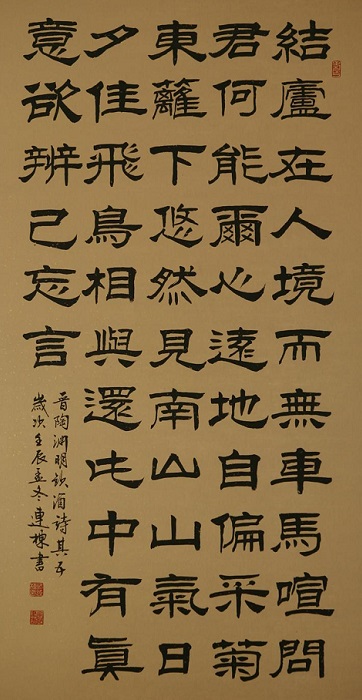 結廬在人境而無車馬喧問
君何能爾心遠地自偏采菊
東籬下悠然見南山山氣日
夕佳飛鳥相與還此中有眞
意欲辨己忘言
晋陶渊明饮酒詩其五
歲次壬辰孟冬連棟書